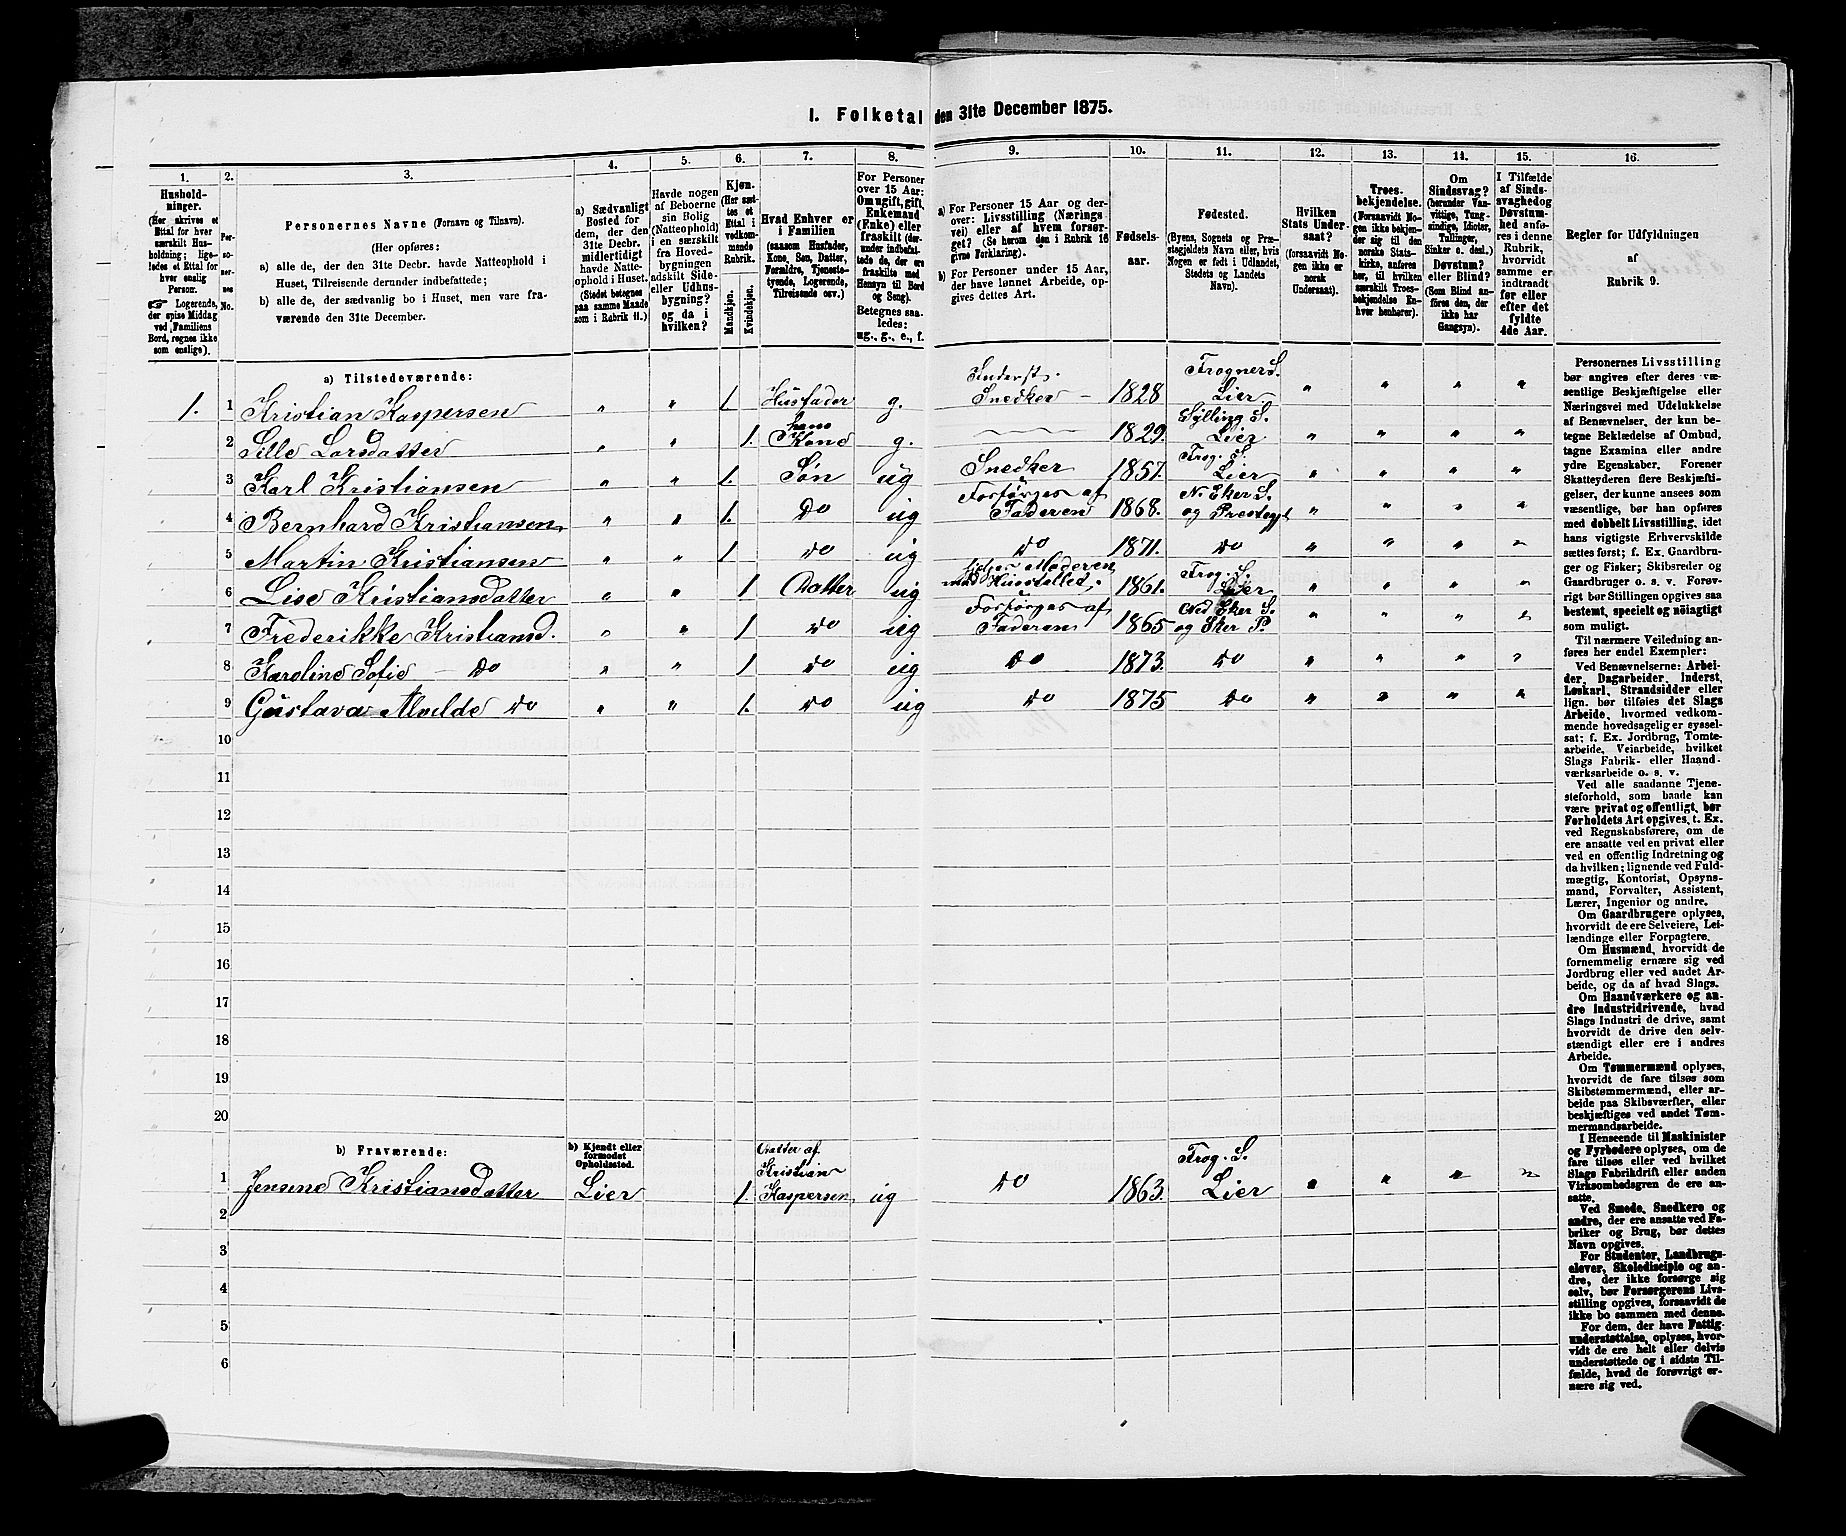 I. Folketal den 31te December 1875.
1.
2.
3.
4.
5.
6.
7.
8.
9.
10.
11.
12.
13.
14.
15.
16.
Hushold-
ninger.
(Her skrives et
Ettal for hver
særskilt Hus-
holdning; lige-
ledes et Ettal for
hver enslig
Person.
☞ Logerende,
der spise Middag
ved Familiens
Bord, regnes ikke
som enslige).
Per-
so-
ner-
nes
No.
Personernes Navne (Fornavn og Tilnavn).
(Her opføres:
a) alle de, der den 31te Decbr. havde Natteophold i
Huset, Tilreisende derunder indbefattede;
b) alle de, der sædvanlig bo i Huset, men vare fra-
værende den 31te December.
a) Sædvanligt
Bosted for
dem, der den
31te Decbr.
midlertidigt
havde Natte-
ophold i Huset.
(Stedet betegnes
paa samme Maade
som i Rubrik 11.)
Havde nogen
af Beboerne
sin Bolig
(Natteophold)
i en særskilt
fra Hoved-
bygningen
adskilt Side-
eller Udhus-
bygning?
og da i
hvilken?
Kjøn.
(Her sæt-
tes et
Ettal i
vedkom-
mende
Rubrik.
Mandkjøn.
Kvindekjøn.
Hvad Enhver er
i Familien
(saasom Husfader,
Kone, Søn, Datter,
Forældre, Tjeneste-
tyende, Logerende,
Tilreisende osv.)
For Personer
over 15 Aar:
Om ugift, gift,
Enkemand
(Enke) eller
fraskilt (der-
under indbefat-
tede de, der ere
fraskilte med
Hensyn til Bord
og Seng).
Betegnes saa-
ledes:
ug., g., e., f.
a) For Personer 15 Aar og der-
over: Livsstilling (Nærings-
vei) eller af hvem forsør-
get? (Se herom den i Rubrik 16
givne Forklaring).
b) For Personer under 15 Aar,
der have lønnet Arbeide, op-
gives dettes Art.
Fødsels-
aar.
Fødested.
(Byens, Sognets og Præ-
stegjeldets Navn eller, hvis
Nogen er født i Udlandet,
Stedets og Landets
Navn).
Hvilken
Stats Under-
saat?
(forsaavidt No-
gen ikke er
norsk
Undersaat).
Troes-
bekjendelse.
(Forsaavidt No-
gen ikke bekjen-
der sig til den
norske Stats-
kirke, anføres
her, til hvilken
særskilt Troes-
bekjendelse En-
hver henhører).
Om
Sindssvag?
(herunder Van-
vittige, Tung-
sindige, Idioter,
Tullinger,
Sinker o. desl.)
Døvstum?
eller Blind?
(Som Blind an-
føres den, der
ikke har
Gangsyn).
I Tilfælde
af Sinds-
svaghed og
Døvstum-
hed anfø-
res i denne
Rubrik,
hvorvidt
samme er
indtraadt
før eller
efter det
fyldte
4de Aar.
Regler for Udfyldningen
af
Rubrik 9.
a) Tilstedeværende:
1. 1 Kristian Kaspersen " " 1 Husfader g. Inderst. Snedker – 1828 Frogner S. Lier " " " "
2 Sille Larsdatter " " 1. hans Kone g. 1829. Sylling S. Lier " " " "
3 Karl Kristiansen " " 1. Søn ug Snedker 1857. Frog. S. Lier " " " "
4 Bernhard Kristiansen " " 1. Do ug Forsørges af Faderen 1868. N. Eker S. og Prestegt " " " "
5 Martin Kristiansen " " 1 Do ug Do 1871. Do " " " "
6 Lise Kristiansdatter " " 1 Datter ug Moderen med Husstellet. 1861. Frog. S. Lier " " " "
7 Frederikke Kristiansd. " " 1 Do ug Forsørges af Faderen 1865 Ned Eker S. og Eker P. " " " "
8 Karoline Sofie – Do " " 1 Do ug Do 1873. Do " " " "
9 Gustava Alvilde Do " " 1. Do ug Do 1875 Do " " " "
10
11
12
13
14
15
16
17
18
19
20
b) Fraværende:
b) Kjendt eller
formodet
Opholdssted.
1 Jensine Kristiansdatter Lier 1. Datter af Kristian Kaspersen ug Do 1863. Frog. S. Lier " " " "
2
3
4
5
6
Personernes Livsstilling
bør angives efter deres væ-
sentlige Beskjæftigelse eller
Næringsvei med Udelukkelse
af Benævnelser, der kun be-
tegne Beklædelse af Ombud,
tagne Examina eller andre
ydre Egenskaber. Forener
Skatteyderen flere Beskjæfti-
gelser, der kunne ansees som
væsentlige, bør han opføres
med dobbelt Livsstilling, idet
hans vigtigste Erhvervskilde
sættes først; f. Ex. Gaardbru-
ger og Fisker; Skibsreder og
Gaardbruger o. s. v. Forøv-
rigt bør Stillingen opgives saa
bestemt, specielt og nøiagtigt
som muligt.
Til nærmere Veiledning an-
føres her endel Exempler:
Ved Benævnelserne: Arbei-
der, Dagarbeider, Inderst,
Løskarl, Strandsidder eller
lign. bør tilføies det Slags
Arbeide, hvormed vedkom-
mende hovedsagelig er syssel-
sat; f. Ex. Jordbrug, Tomte-
arbeide, Veiarbeide, hvilket
Slags Fabrik- eller Haand-
værksarbeide o. s. v.
Ved alle saadanne Tjene-
steforhold, som baade kan
være privat og offentligt, bør
Forholdets Art opgives, t. Ex.
ved Regnskabsførere, om de
ere ansatte ved en privat eller
ved en offentlig Indretning og
da hvilken; lignende ved Fuld-
mægtig, Kontorist, Opsyns-
mand, Forvalter, Assistent,
Lærer, Ingeniør og andre.
Om Gaardbrugere oplyses,
hvorvidt de ere Selveiere, Lei-
lændinge eller Forpagtere.
Om Husmænd, hvorvidt de
fornemmelig ernære sig ved
Jordbrug eller ved andet Ar-
beide, og da af hvad Slags.
Om Haandværkere og an-
dre Industridrivende, hvad
Slags Industri de drive, samt
hvorvidt de drive den selv-
stændigt eller ere i andres
Arbeide.
Om Tømmermænd oplyses,
hvorvidt de fare tilsøs som
Skibstømmermænd, eller ar-
beide paa Skibsværfter, eller
beskjæftiges ved andet Tøm-
mermandsarbeide.
I Henseende til Maskinister
og Fyrbødere oplyses, om de
fare tilsøs eller ved hvilket
Slags Fabrikdrift eller anden
Virksomhedsgren de ere an-
satte.
Ved Smede, Snedkere og
andre, der ere ansatte ved Fa-
briker og Brug, bør dettes
Navn opgives.
For Studenter, Landbrugs-
elever, Skoledisciple og an-
dre, der ikke forsørge sig
selv, bør Forsørgerens Livs-
stilling opgives, forsaavidt de
ikke bo sammen med denne.
For dem, der have Fattig-
understøttelse, oplyses, hvor-
vidt de ere helt eller delvis
understøttede og i sidste Til-
fælde, hvad de forøvrigt er-
nære sig ved.